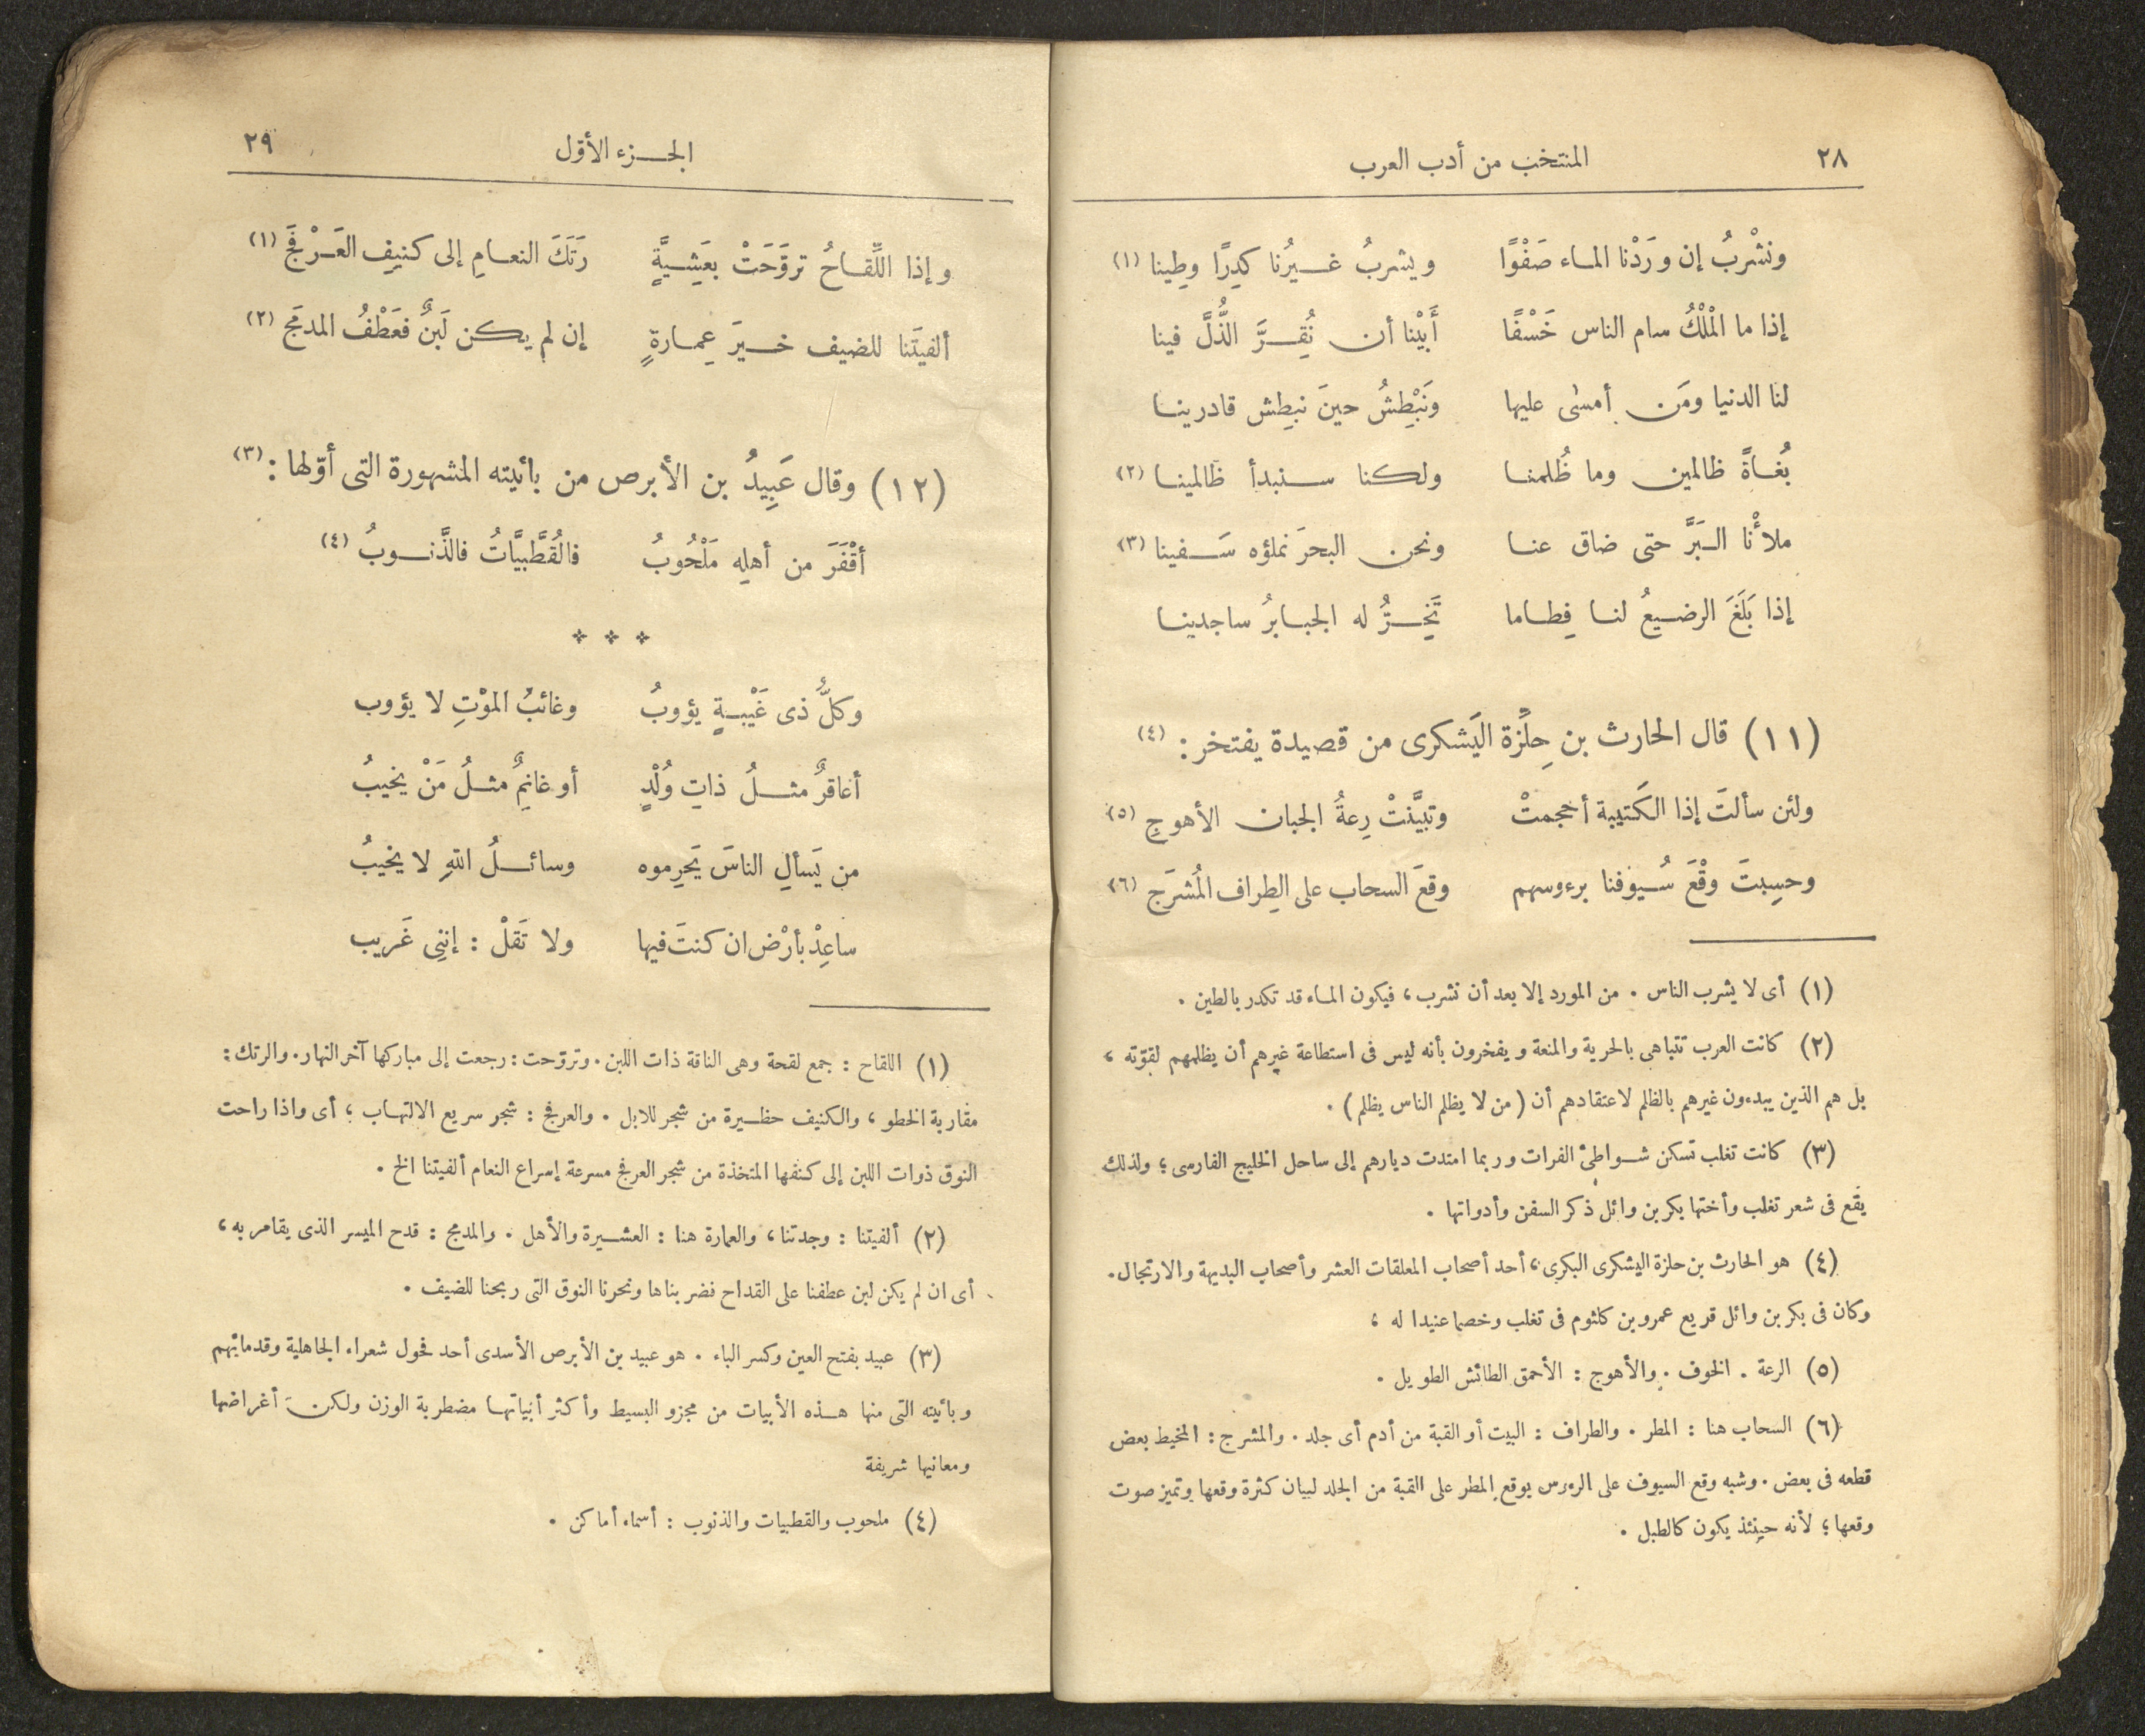 ٢٨
المنتخب من أدب العرب
ونشْربُ إن ورَدْنا الماء صَفْوًا ويشربُ غيرُنا كدِرًا وطِينا (١)
إذا ما المْلْكُ سام الناس خَسْفًا أَبَيْنا أن نُقِرَّ الذُّلَّ فينا
لنا الدنيا ومَن أمسٰى عليها ونَبْطِشُ حينَ نبطِش قادرينا
بُغاةً ظالمين وما ظُلمنا ولكنا سنبدأ ظالمينا (٢)
ملأْنا البَرَّ حتى ضاق عنا ونحن البحرَ نملؤه سَفينا (٣)
إذا بَلَغَ الرضيعُ لنا فِطاما تَخِرُّ له الجبابرُ ساجدينا
(١١) قال الحارث بن حِلِّزة اليَشكرى من قصيدة يفتخر : (٤)
ولئن سألتَ إذا الكَتيبة أحجمتْ وتبيَّنتْ رِعةُ الجبان الأهوجِ (٥)
وحسِبتَ وقْعَ سُيوفنا برءوسهم وقعَ السحاب على الطِراف المُشرَج (٦)
(١) أى لا يشرب الناس . من المورد إلا بعد أن نشرب ، فيكون الماء قد تكدر بالطين .
(٢) كانت العرب تتباهى بالحرية والمنعة ويفخرون بأنه ليس فى استطاعة غيرهم أن يظلمهم لقوّته ،
بل هم الذين يبدءون غيرهم بالظلم لاعتقادهم أن (من لا يظلم الناس يظلم) .
(٣) كانت تغلب تسكن شواطئ الفرات وربما امتدت ديارهم إلى ساحل الخليج الفارسى ؛ ولذلك
يقع فى شعر تغلب وأختها بكر بن وائل ذكر السفن وأدواتها .
(٤) هو الحارث بن حلزة اليشكرى البكرى ، أحد أصحاب المعلقات العشر وأصحاب البديهة والارتجال .
وكان فى بكر بن وائل قريع عمرو بن كلثوم فى تغلب وخصما عنيدا له ،
(٥) الرعة . الخوف . والأهوج : الأحمق الطائش الطويل .
(٦) السحاب هنا : المطر . والطراف : البيت أو القبة من أدم أى جلد . والمشرج : المخيط بعض
قطعه فى بعض . وشبه وقع السيوف على الرءوس بوقع المطر على القبة من الجلد لبيان كثرة وقعها وتميز صوت
وقعها ؛ لأنه حينئذ يكون كالطبل .
الجزء الأوّل
٢٩
وإذا اللِّقاحُ تروَّحَتْ بعَشِيَّةٍ رَتَكَ النعامِ إلى كنيفِ العَرْفَجَ (١)
ألفيتَنا للضيف خيرَ عِمارةٍ إن لم يكن لَبنٌ فعَطْفُ المدمَج (٢)
(١٢) وقال عَبِيدُ بن الأبرص من بائيته المشهورة التى أوّلها : (٣)
أقْفَرَ من أهلِه مَلْحُوبُ فالقُطَّبيَّاتُ فالذَّنوبُ (٤)
* * *
وكلُّ ذى غَيْبةٍ يؤوبُ وغائبُ الموْتِ لا يؤوب
أعاقرٌ مثلُ ذاتِ وُلْدٍ أو غانِمٌ مثلُ مَنْ يخيبُ
من يَسألِ الناسَ يَحرِموه وسائلُ اللهِ لا يخيبُ
ساعِدْ بأرْض ان كنتَ فيها ولا تَقلْ : إننِى غَريب
(١) اللقاح : جمع لقحة وهى الناقة ذات اللبن . وتروّحت : رجعت إلى مباركها آخر النهار . والرتك :
مقاربة الخطو ، والكنيف حظيرة من شجر للابل . والعرفج : شجر سريع الالتهاب ، أى واذا راحت
النوق ذوات اللبن إلى كنفها المتخذة من شجر العرفج مسرعة إسراع النعام ألفيتنا الخ .
(٢) ألفيتنا : وجدتنا ، والعمارة هنا : العشيرة والأهل . والمدمج : قدح الميسر الذى يقامر به ،
أى ان لم يكن لبن عطفنا على القداح فضربناها ونحرنا النوق التى ربحنا للضيف .
(٣) عبيد بفتح العين وكسر الباء . هو عبيد بن الأبرص الأسدى أحد فحول شعراء الجاهلية وقدمائهم
وبائيته التى منها هذه الأبيات من مجزو البسيط وأكثر أبياتها مضطربة الوزن ولكن أغراضها
ومعانيها شريفة
(٤) ملحوب والقطبيات والذنوب : أسماء أماكن .